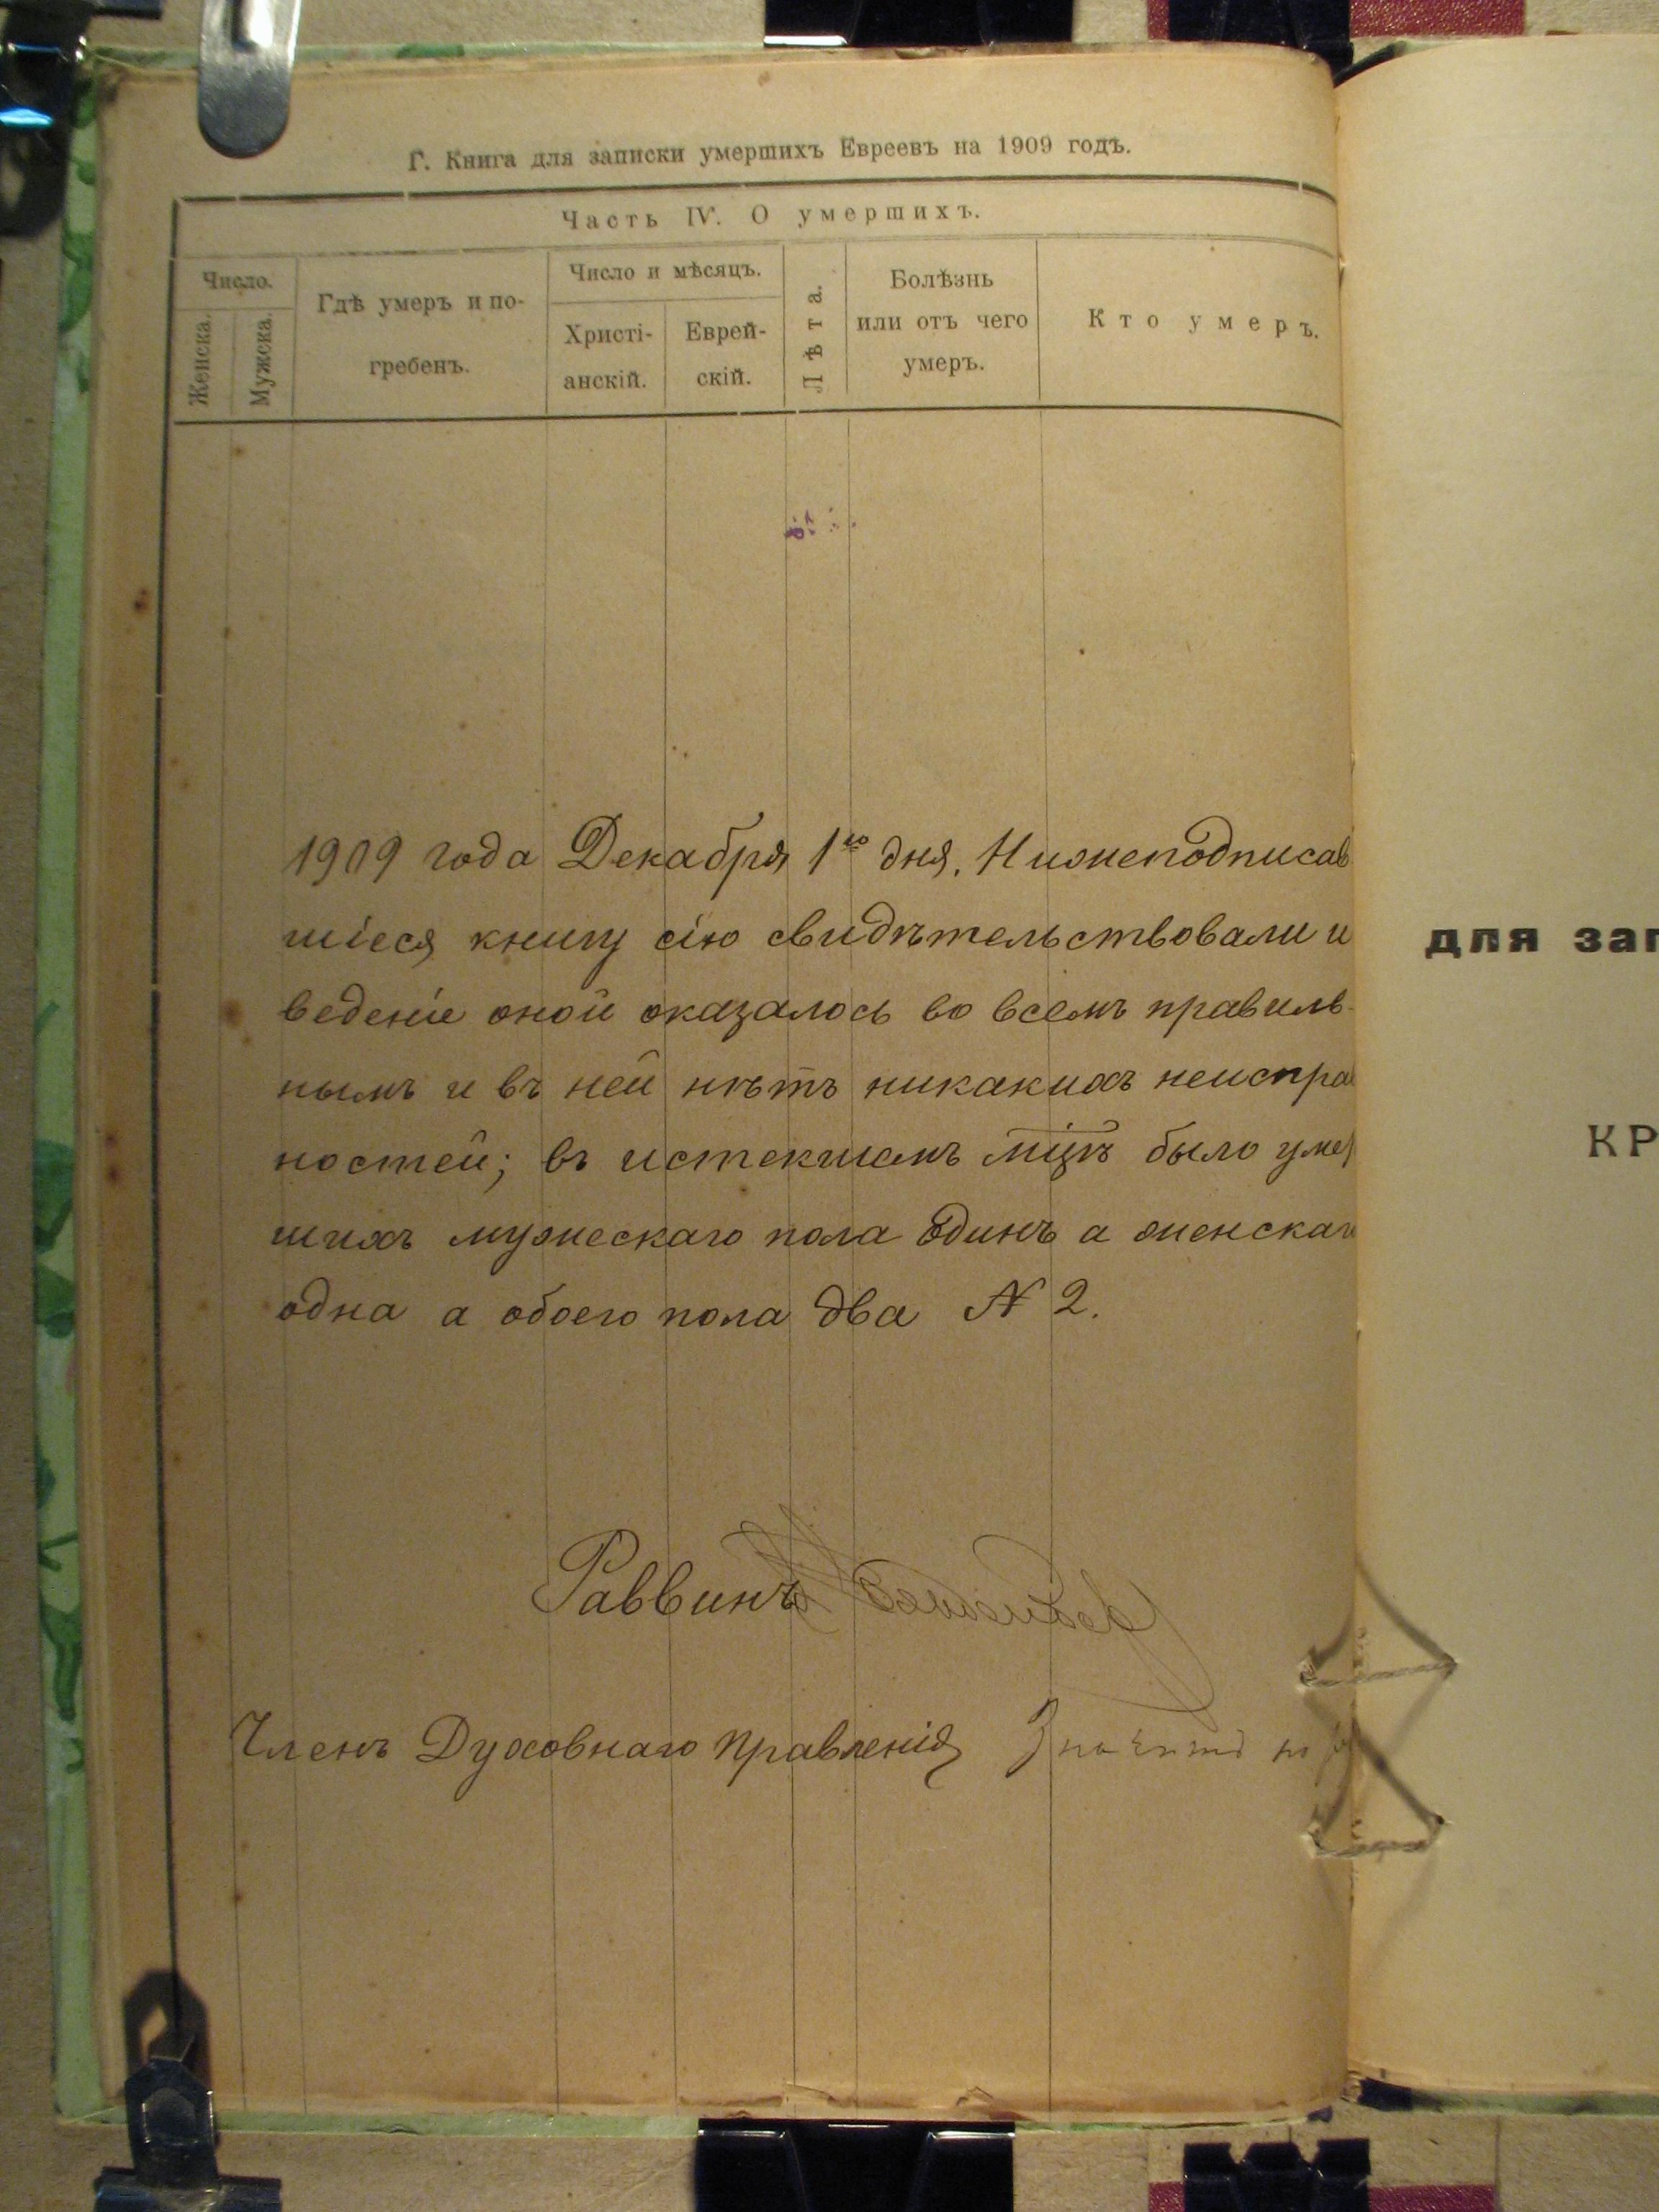 Г. Книга для записки умершихъ Евреевъ на 1909 годъ.
Часть IV. О умершихъ.
Число.
Женска.
Мужска.
Гдѣ умеръ и по-
гребенъ.
Число и мѣсяцъ.
Христі-
анскій.
Еврей-
скій.
Лѣта.
Болѣзнь
или отъ чего
умеръ.
Кто умеръ.
1909 года Декабря 1го дня. Нижеподписав
шіеся книгу сію свидѣтельствовали и
веденіе оной оказалось во всемъ правиль-
нымъ и въ ней нѣтъ никакихъ неиспра
ностей; въ истекшемъ мцѣ было умер
шихъ мужескаго пола одинъ а женскаго
одна а обоего пола два N 2.
Раввинъ
Членъ Духовнаго Правленія
для зап
КР